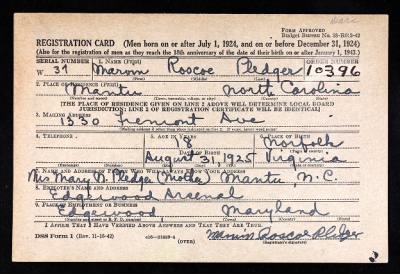 FORM APPROVED
Budget Bureau No. 33-R012-42
REGISTRATION CARD (Men born on or after July 1, 1924, and on or before December 31, 1924)
(Also for the registration of men as they reach the 18th anniversary of the date of their birth on or after January 1, 1943.)
SERIAL NUMBER 1. NAME (Print) ORDER NUMBER
W 37 Marion Roscoe Pledger 10396
(First) (Middle) (Last)
2. PLACE OF RESIDENCE (Print)
Manteo North Carolina
[THE PLACE OF RESIDENCE GIVEN ON LINE 2 ABOVE WILL DETERMINE LOCAL BOARD
JURISDICTION; LINE 2 OF REGISTRATION CERTIFICATE WILL BE IDENTICAL]
3. MAILING ADDRESS
1330 Fremont Ave
[Mailing address if other than place indicated on line 2. If same, insert word same]
4. TELEPHONE 5. AGE IN YEARS 6. PLACE OF BIRTH
18 Norfolk
DATE OF BIRTH
August 31, 1925 Virginia
7. NAME AND ADDRESS OF PERSON WHO WILL ALWAYS KNOW YOUR ADDRESS
Mrs Mary N. Pledger (Mother) Manteo, N.C.
8. EMPLOYER'S NAME AND ADDRESS
Edgewood Arsenal
9. PLACE OF EMPLOYMENT OR BUSINESS
Edgewood, Maryland
I AFFIRM THAT I HAVE VERIFIED ABOVE ANSWERS AND THAT THEY ARE TRUE.
DSS Form 1 (Rev. 11-16-42) (OVER) Marion Roscoe Pledger
(Registrant's signature)